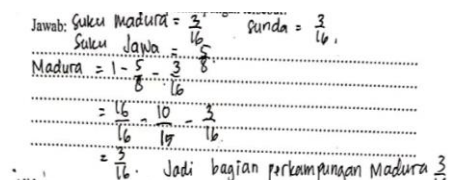 Jawab: Suku Madura = 3/16 Sunda = 3/16.
Suku Jawa = 5/8.
Madura = 1 - 5/8 - 3/16
= 16/16 - 10/15 - 3/16
= 3/16. Jadi bagian perkampungan Madura 3